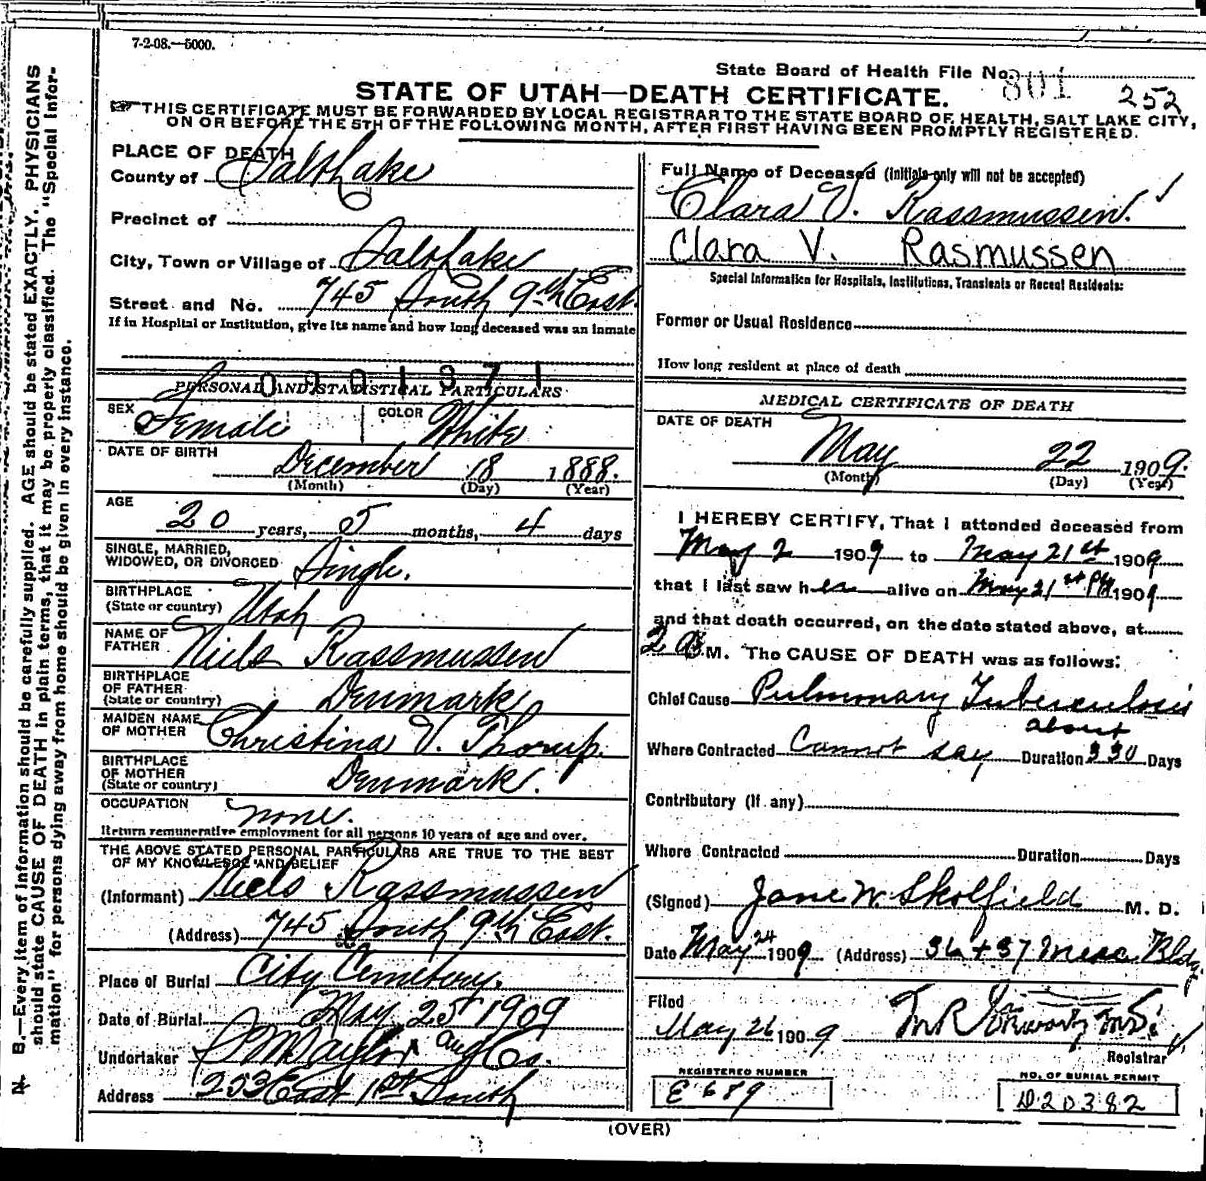 7-2-08.—5000.
State Board of Health File No. 801 252
STATE OF UTAH—DEATH CERTIFICATE.
THIS CERTIFICATE MUST BE FORWARDED BY LOCAL REGISTRAR TO THE STATE BOARD OF HEALTH, SALT LAKE CITY,
ON OR BEFORE THE 5TH OF THE FOLLOWING MONTH, AFTER FIRST HAVING BEEN PROMPTLY REGISTERED.
N. B.—Every item of information should be carefully supplied. AGE should be stated EXACTLY. PHYSICIANS
should state CAUSE OF DEATH in plain terms, that it may be properly classified. The "Special Infor-
mation" for persons dying away from home should be given in every instance.
PLACE OF DEATH
County of Salt Lake
Precinct of
City, Town or Village of Salt Lake
Street and No. 745 South 9th East
If in Hospital or Institution, give its name and how long deceased was an inmate
0001371
PERSONAL AND STATISTICAL PARTICULARS
SEX Female COLOR White
DATE OF BIRTH
December 18 1888.
(Month) (Day) (Year)
AGE
20 years, 5 months, 4 days
SINGLE, MARRIED,
WIDOWED, OR DIVORCED Single.
BIRTHPLACE
(State or country) Utah
NAME OF
FATHER Niels Rassmussen
BIRTHPLACE
OF FATHER
(State or country) Denmark
MAIDEN NAME
OF MOTHER Christina V. Thorup.
BIRTHPLACE
OF MOTHER
(State or country) Denmark.
OCCUPATION none.
Return remunerative employment for all persons 10 years of age and over.
THE ABOVE STATED PERSONAL PARTICULARS ARE TRUE TO THE BEST
OF MY KNOWLEDGE AND BELIEF
(Informant) Niels Rassmussen
(Address) 745 South 9th East.
Place of Burial City Cemetery.
Date of Burial May 25th 1909
Undertaker S M Taylor and Co.
Address 253 East 1st South
Full Name of Deceased (Initials only will not be accepted)
Clara V. Rassmussen.
Clara V. Rasmussen
Special Information for Hospitals, Institutions, Transients or Recent Residents:
Former or Usual Residence
How long resident at place of death
MEDICAL CERTIFICATE OF DEATH
DATE OF DEATH
May 22 1909.
(Month) (Day) (Year)
I HEREBY CERTIFY, That I attended deceased from
May 2 1909 to May 21st 1909
that I last saw her alive on May 21st PM 1909
and that death occurred, on the date stated above, at
2 a M. The CAUSE OF DEATH was as follows:
Chief Cause Pulmonary Tuberculosis
about
Where Contracted Cannot say Duration 330 Days
Contributory (If any)
Where Contracted Duration Days
(Signed) Jane W Skolfield M. D.
Date May 24 1909 (Address) 36 + 37 Bldg
Filed
May 26 1909 M.D.
Registrar
REGISTERED NUMBER
E 689
NO. OF BURIAL PERMIT
D20382
(OVER)